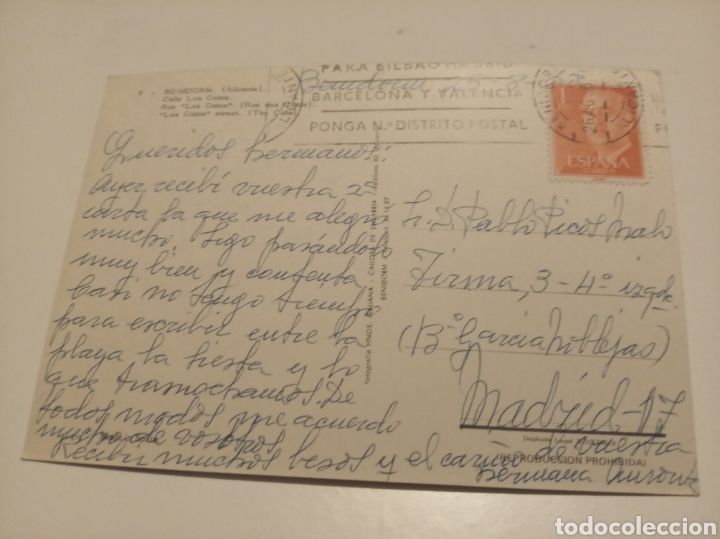 PARA BILBAO MADRID
BARCELONA Y VALENCIA
PONGA N.º DISTRITO POSTAL
8 - BENIDORM. (Alicante).
Calle Los Gatos.
Rue "Los Gatos". (Rue des
"Los Gatos" street. (The Cats)
Benidorm
ESPAÑA
Queridos hermanos:
Ayer recibí vuestra 2ª
carta la que me alegró
mucho. Sigo pasándolo
muy bien y contenta
Casi no tengo tiempo
para escribir entre la
playa la siesta y lo
que trasnochamos. De
todos modos me acuerdo
mucho de vosotros
Recibir muchos besos y el cariño de vuestra
hermana
Sr. D. Pablo Picos
Tirma, 3-4º izqda.
(Bº García Noblejas)
Madrid-17
BENIDORM
(REPRODUCCION PROHIBIDA)
todocoleccion